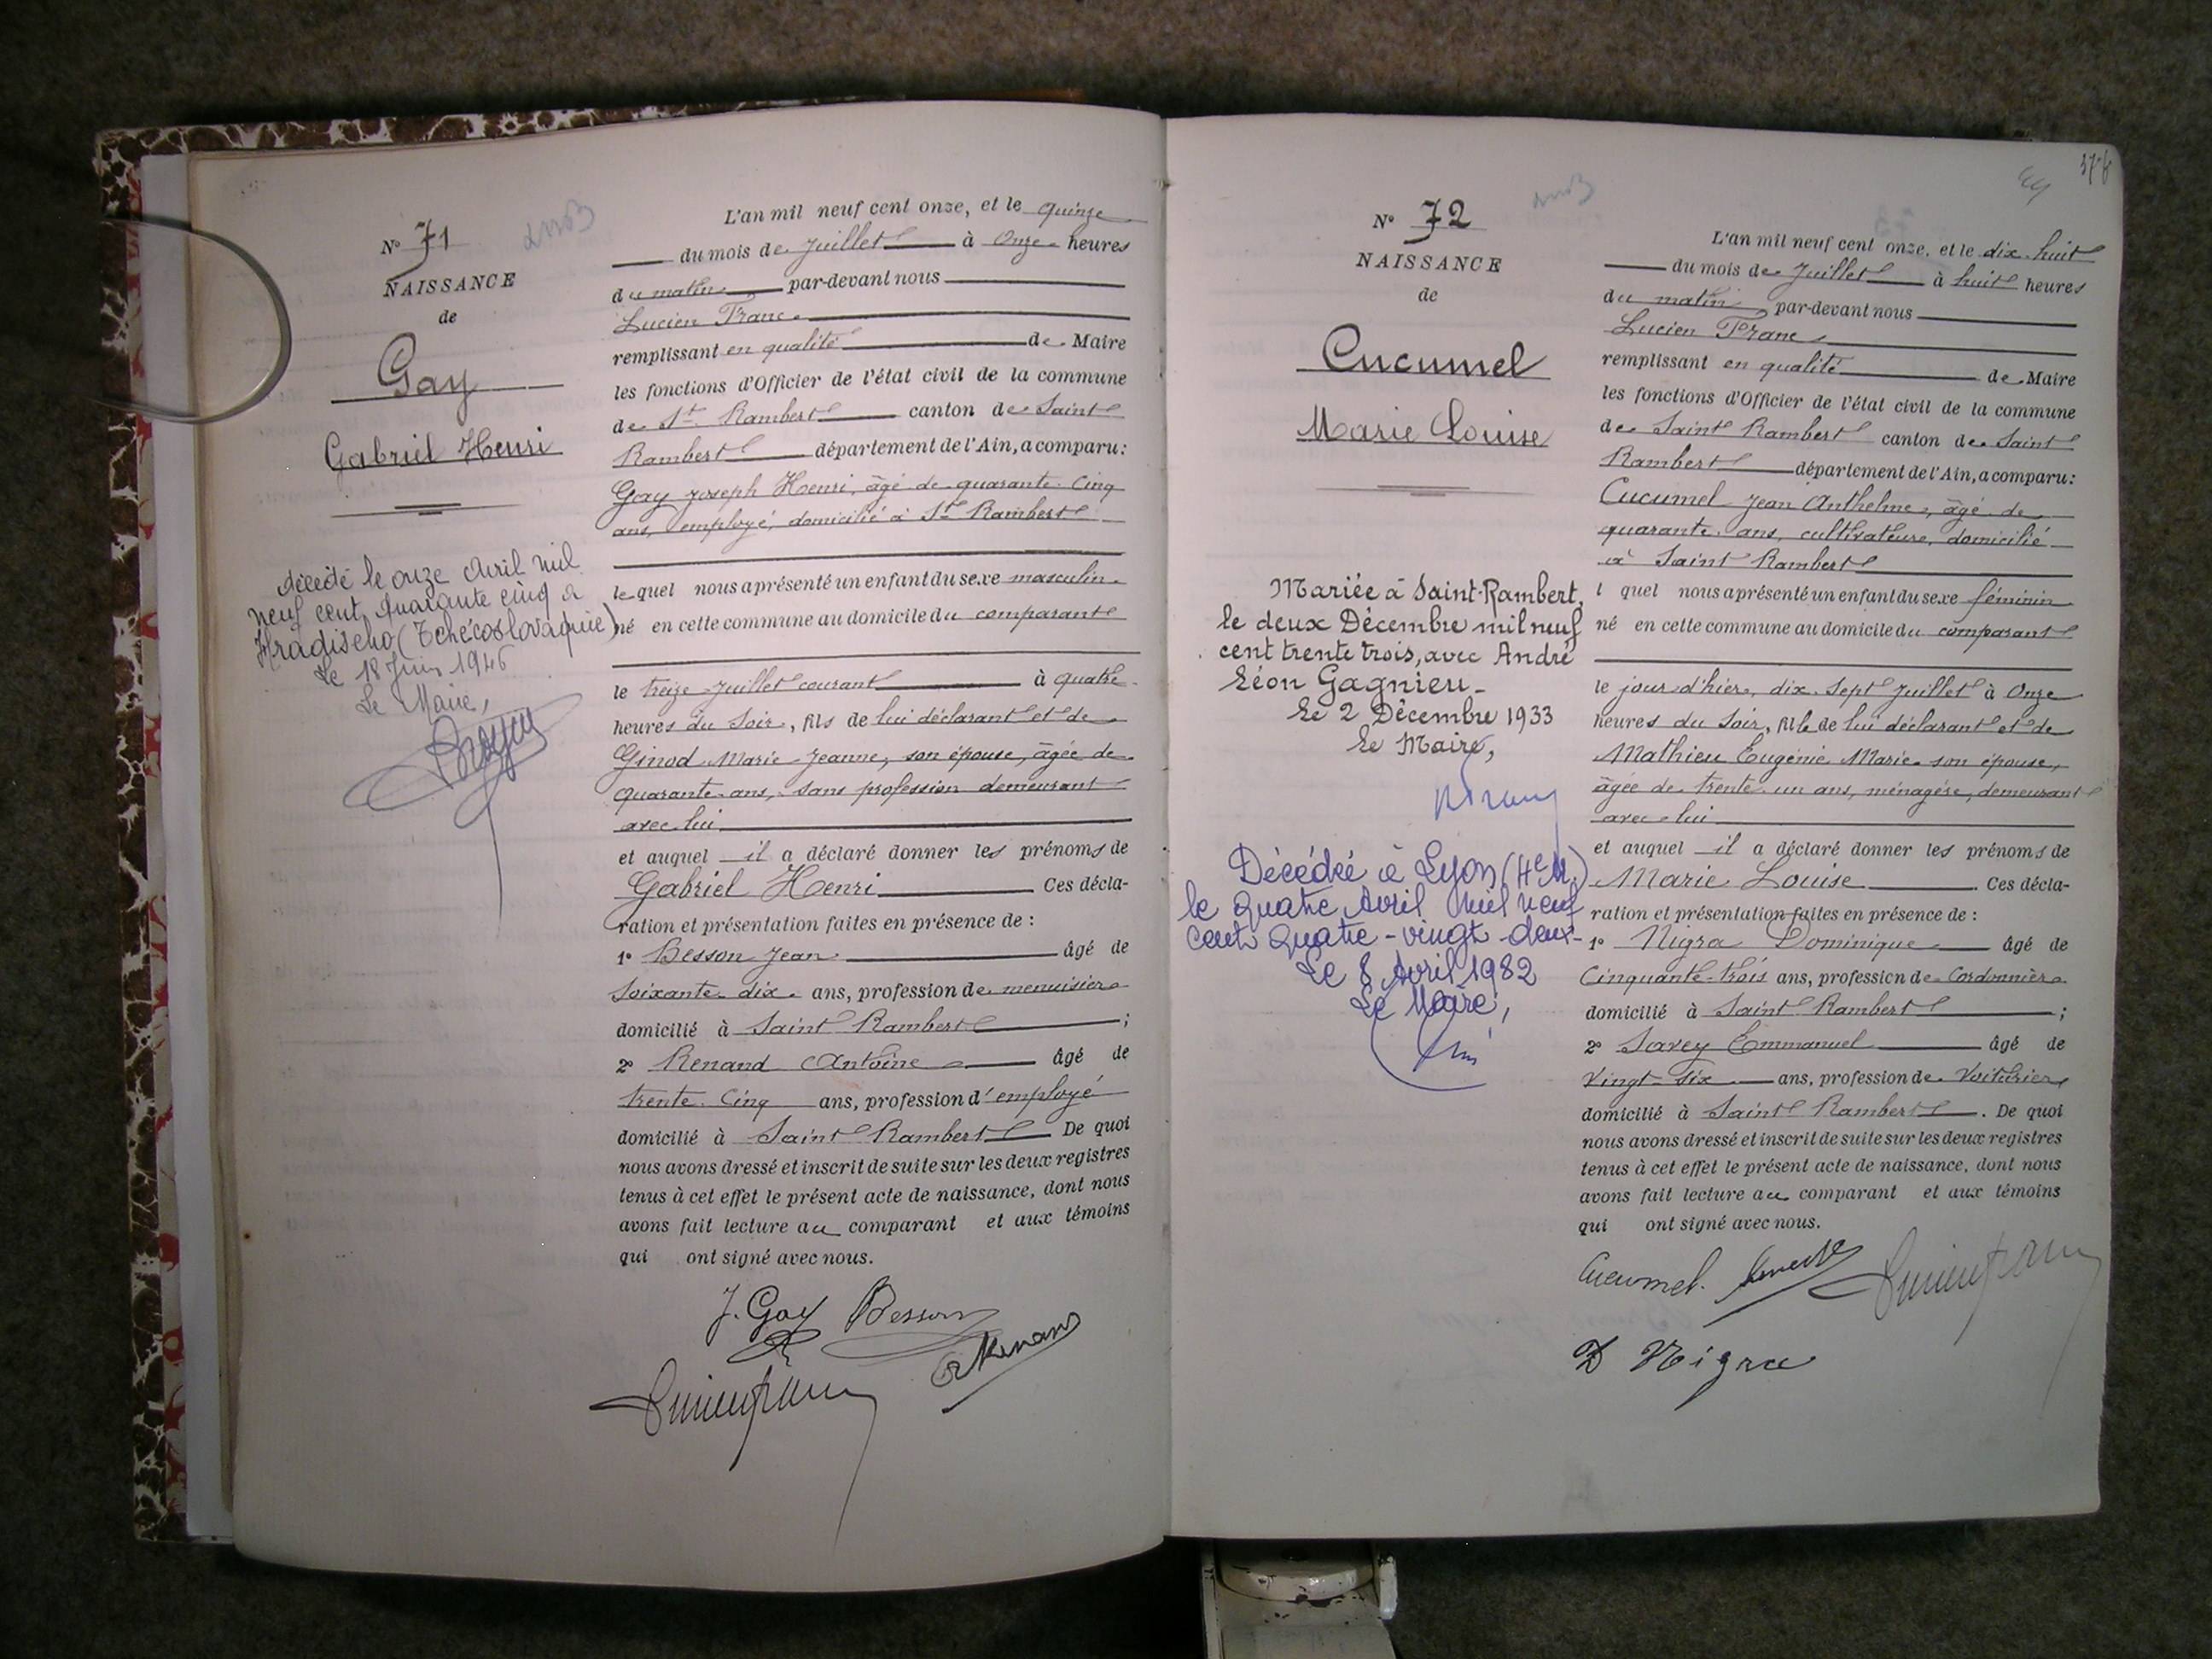 N° 71
NAISSANCE
de
Gay
Gabriel Henri
décédé le onze Avril mil
neuf cent quarante cinq à
Hradischo (Tchécoslovaquie)
Le 18 Juin 1946
Le Maire,
L'an mil neuf cent onze, et le quinze
du mois de Juillet à Onze heures
du matin par-devant nous
Lucien Franc
remplissant en qualité de Maire
les fonctions d'Officier de l'état civil de la commune
de St Rambert canton de Saint
Rambert département de l'Ain, a comparu:
Gay Joseph Henri, âgé de quarante-Cinq
ans, employé, domicilié à St Rambert
lequel nous a présenté un enfant du sexe masculin
né en cette commune au domicile du comparant
le treize Juillet courant à quatre
heures du Soir, fils de lui déclarant et de
Ginod Marie-Jeanne, son épouse, âgée de
quarante ans, sans profession demeurant
avec lui
et auquel il a déclaré donner les prénoms de
Gabriel Henri Ces décla-
ration et présentation faites en présence de :
1° Besson Jean âgé de
Soixante-dix ans, profession de menuisier
domicilié à Saint Rambert ;
2° Renand Antoine âgé de
trente-Cinq ans, profession d'employé
domicilié à Saint Rambert De quoi
nous avons dressé et inscrit de suite sur les deux registres
tenus à cet effet le présent acte de naissance, dont nous
avons fait lecture au comparant et aux témoins
qui ont signé avec nous.
J. Gay Besson
N° 72
NAISSANCE
de
Cucumel
Marie Louise
Mariée à Saint-Rambert,
le deux Décembre mil neuf
cent trente trois, avec André
Léon Gagnieu
Le 2 Décembre 1933
Le Maire,
Décédée à Lyon (4e M.)
le quatre Avril mil neuf
cent quatre-vingt-deux
Le 8 Avril 1982
Le Maire,
L'an mil neuf cent onze, et le dix-huit
du mois de Juillet à huit heures
du matin par-devant nous
Lucien Franc
remplissant en qualité de Maire
les fonctions d'Officier de l'état civil de la commune
de Saint Rambert canton de Saint
Rambert département de l'Ain, a comparu:
Cucumel Jean Anthelme, âgé de
quarante ans, cultivateur, domicilié
à Saint Rambert
l quel nous a présenté un enfant du sexe féminin
né en cette commune au domicile du comparant
le jour d'hier, dix-Sept Juillet à Onze
heures du Soir, fille de lui déclarant et de
Mathieu Eugénie Marie son épouse,
âgée de trente-un ans, ménagère, demeurant
avec lui
et auquel il a déclaré donner les prénoms de
Marie Louise Ces décla-
ration et présentation faites en présence de :
1° Nigra Dominique âgé de
Cinquante-trois ans, profession de Cordonnier
domicilié à Saint Rambert ;
2° Savey Emmanuel âgé de
Vingt-Six ans, profession de Voiturier
domicilié à Saint Rambert . De quoi
nous avons dressé et inscrit de suite sur les deux registres
tenus à cet effet le présent acte de naissance, dont nous
avons fait lecture au comparant et aux témoins
qui ont signé avec nous.
Cucumel.
D Nigra